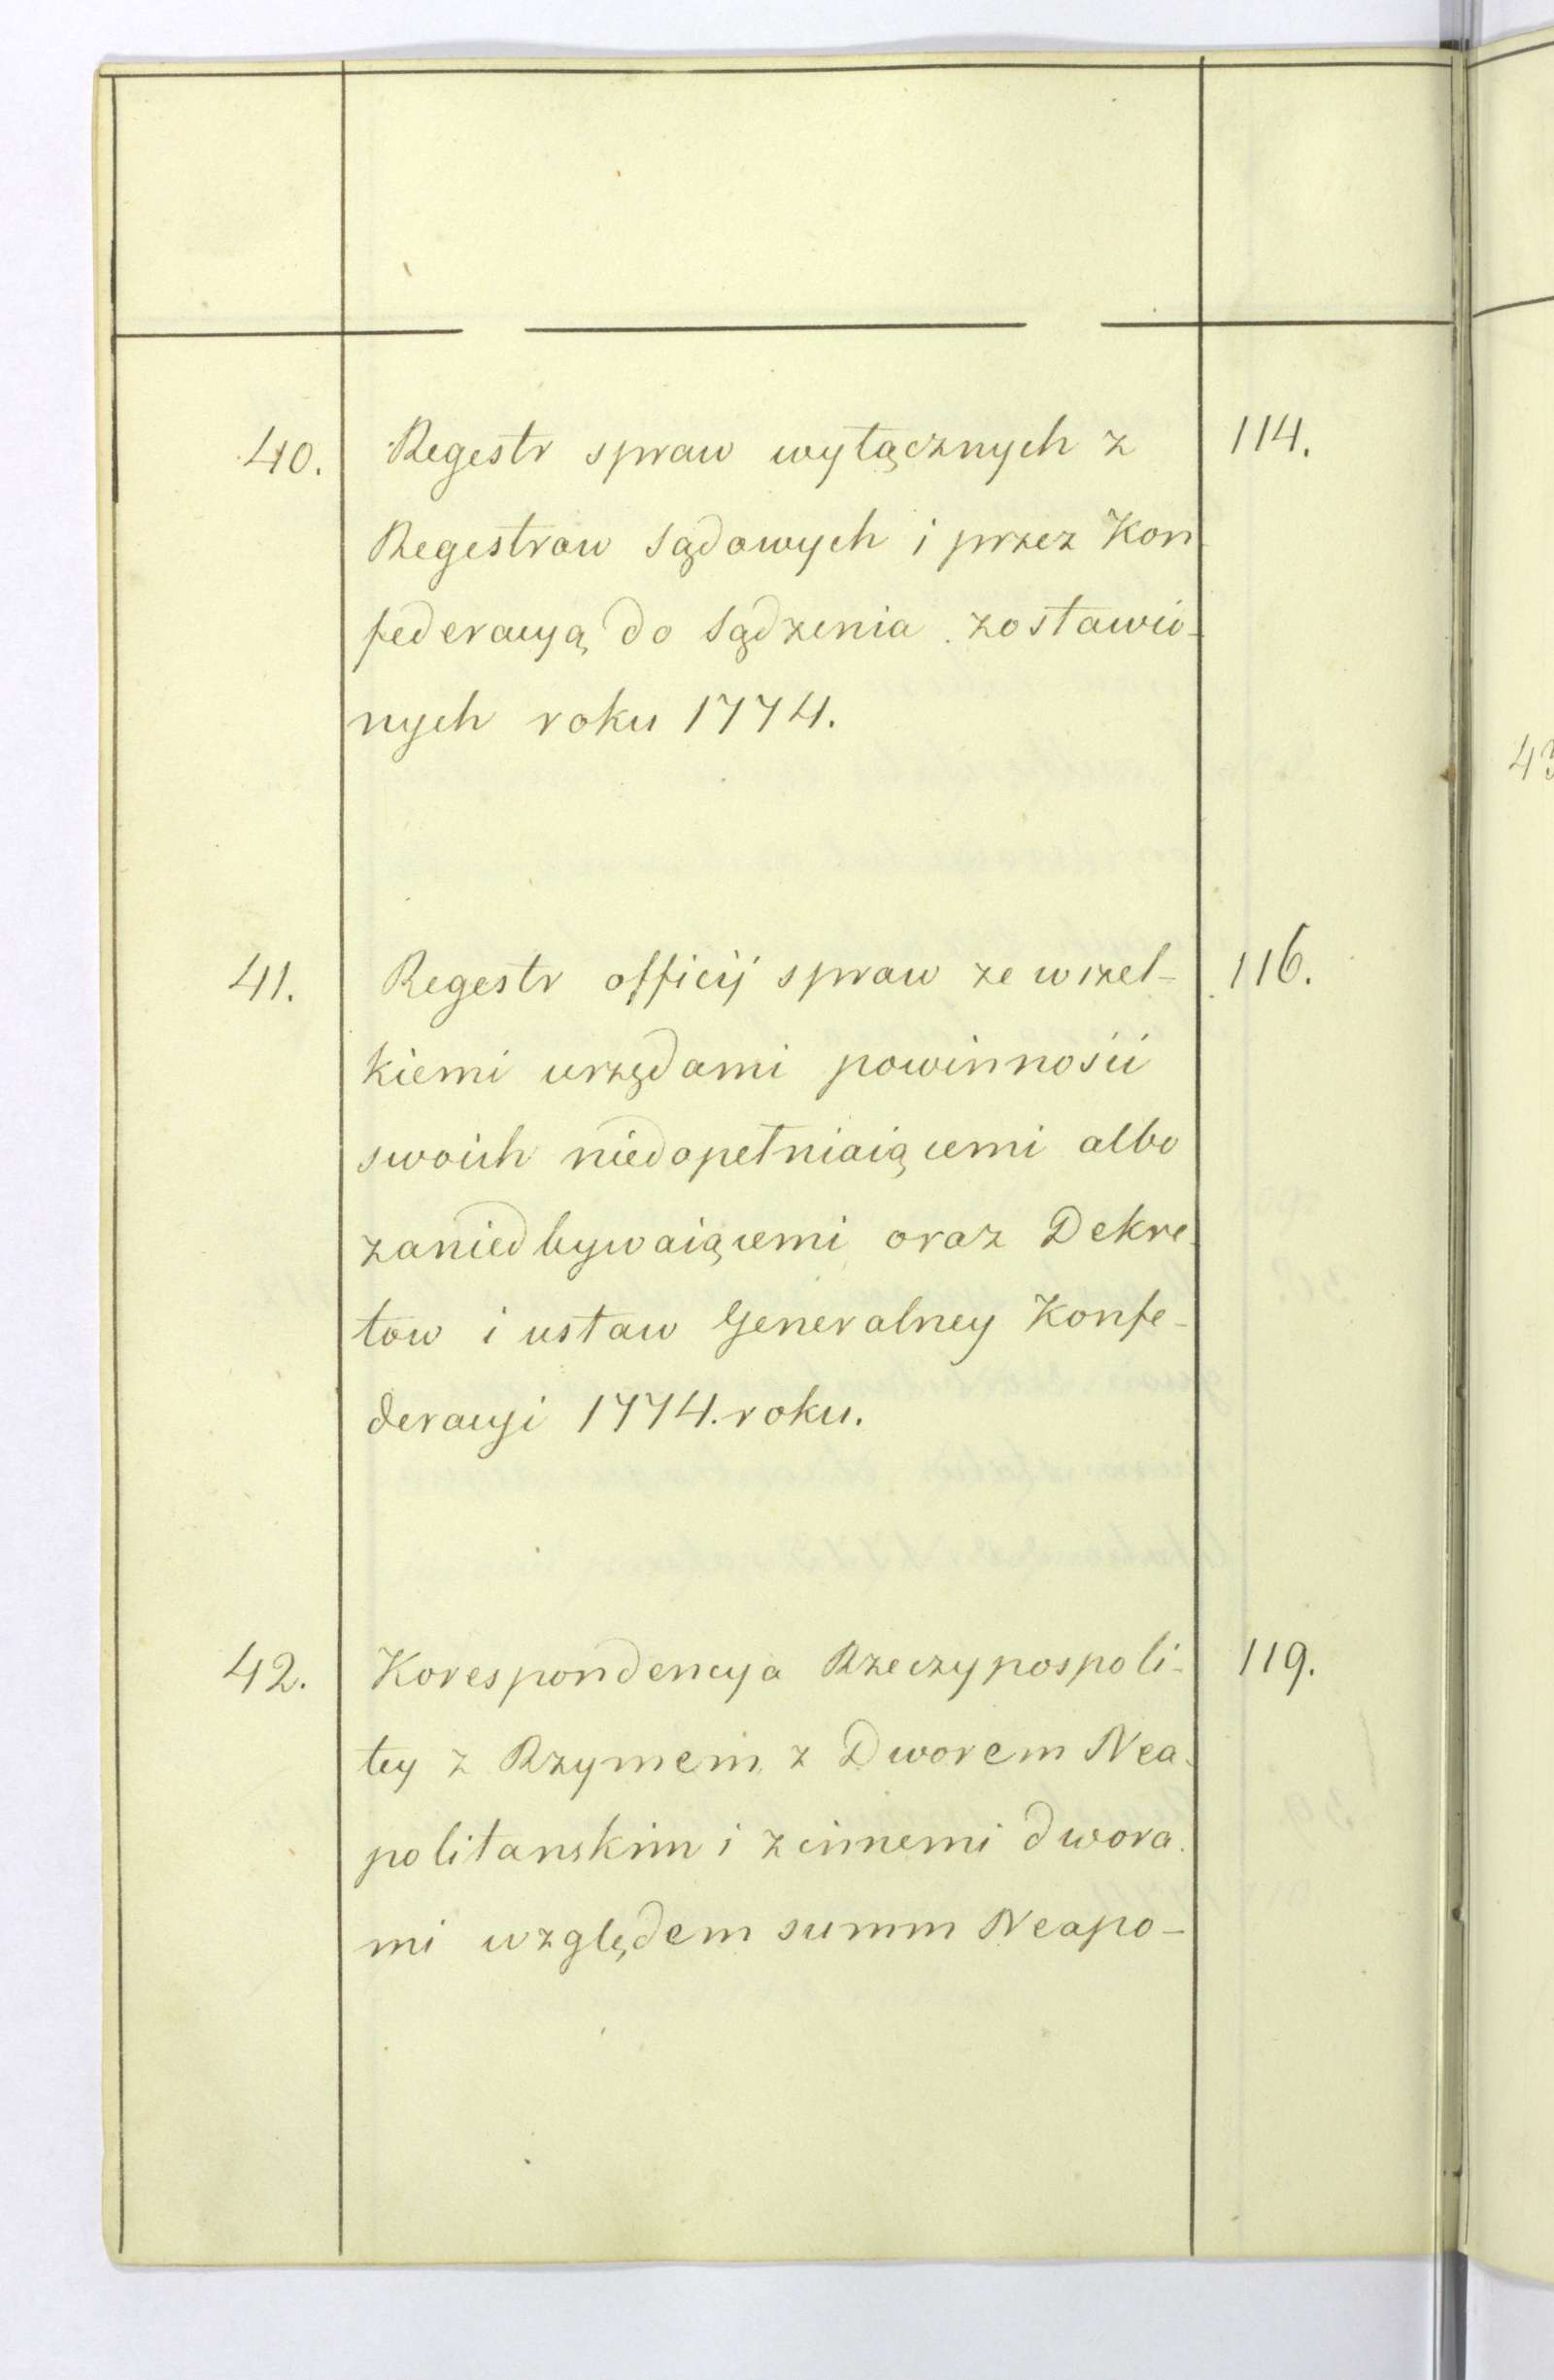 40. Regestr spraw wyłącznych z 114.
Regestrow Sądowych i przez Kon
federacyą do Sądzenia zostawio-
nych roku 1774.
41. Regestr officij spraw ze wszel- 116.
kiemi urzędami powinności
swoich niedopełniaiącemi albo
zaniedbywaiącemi oraz Dekre-
tow i ustaw Generalney Konfe-
deracyi 1774. roku.
42. Korespondencya Rzeczypospoli- 119.
tey z Rzymem, z Dworem Nea-
politanskim i z innemi dwora-
mi względem summ Neapo-
43